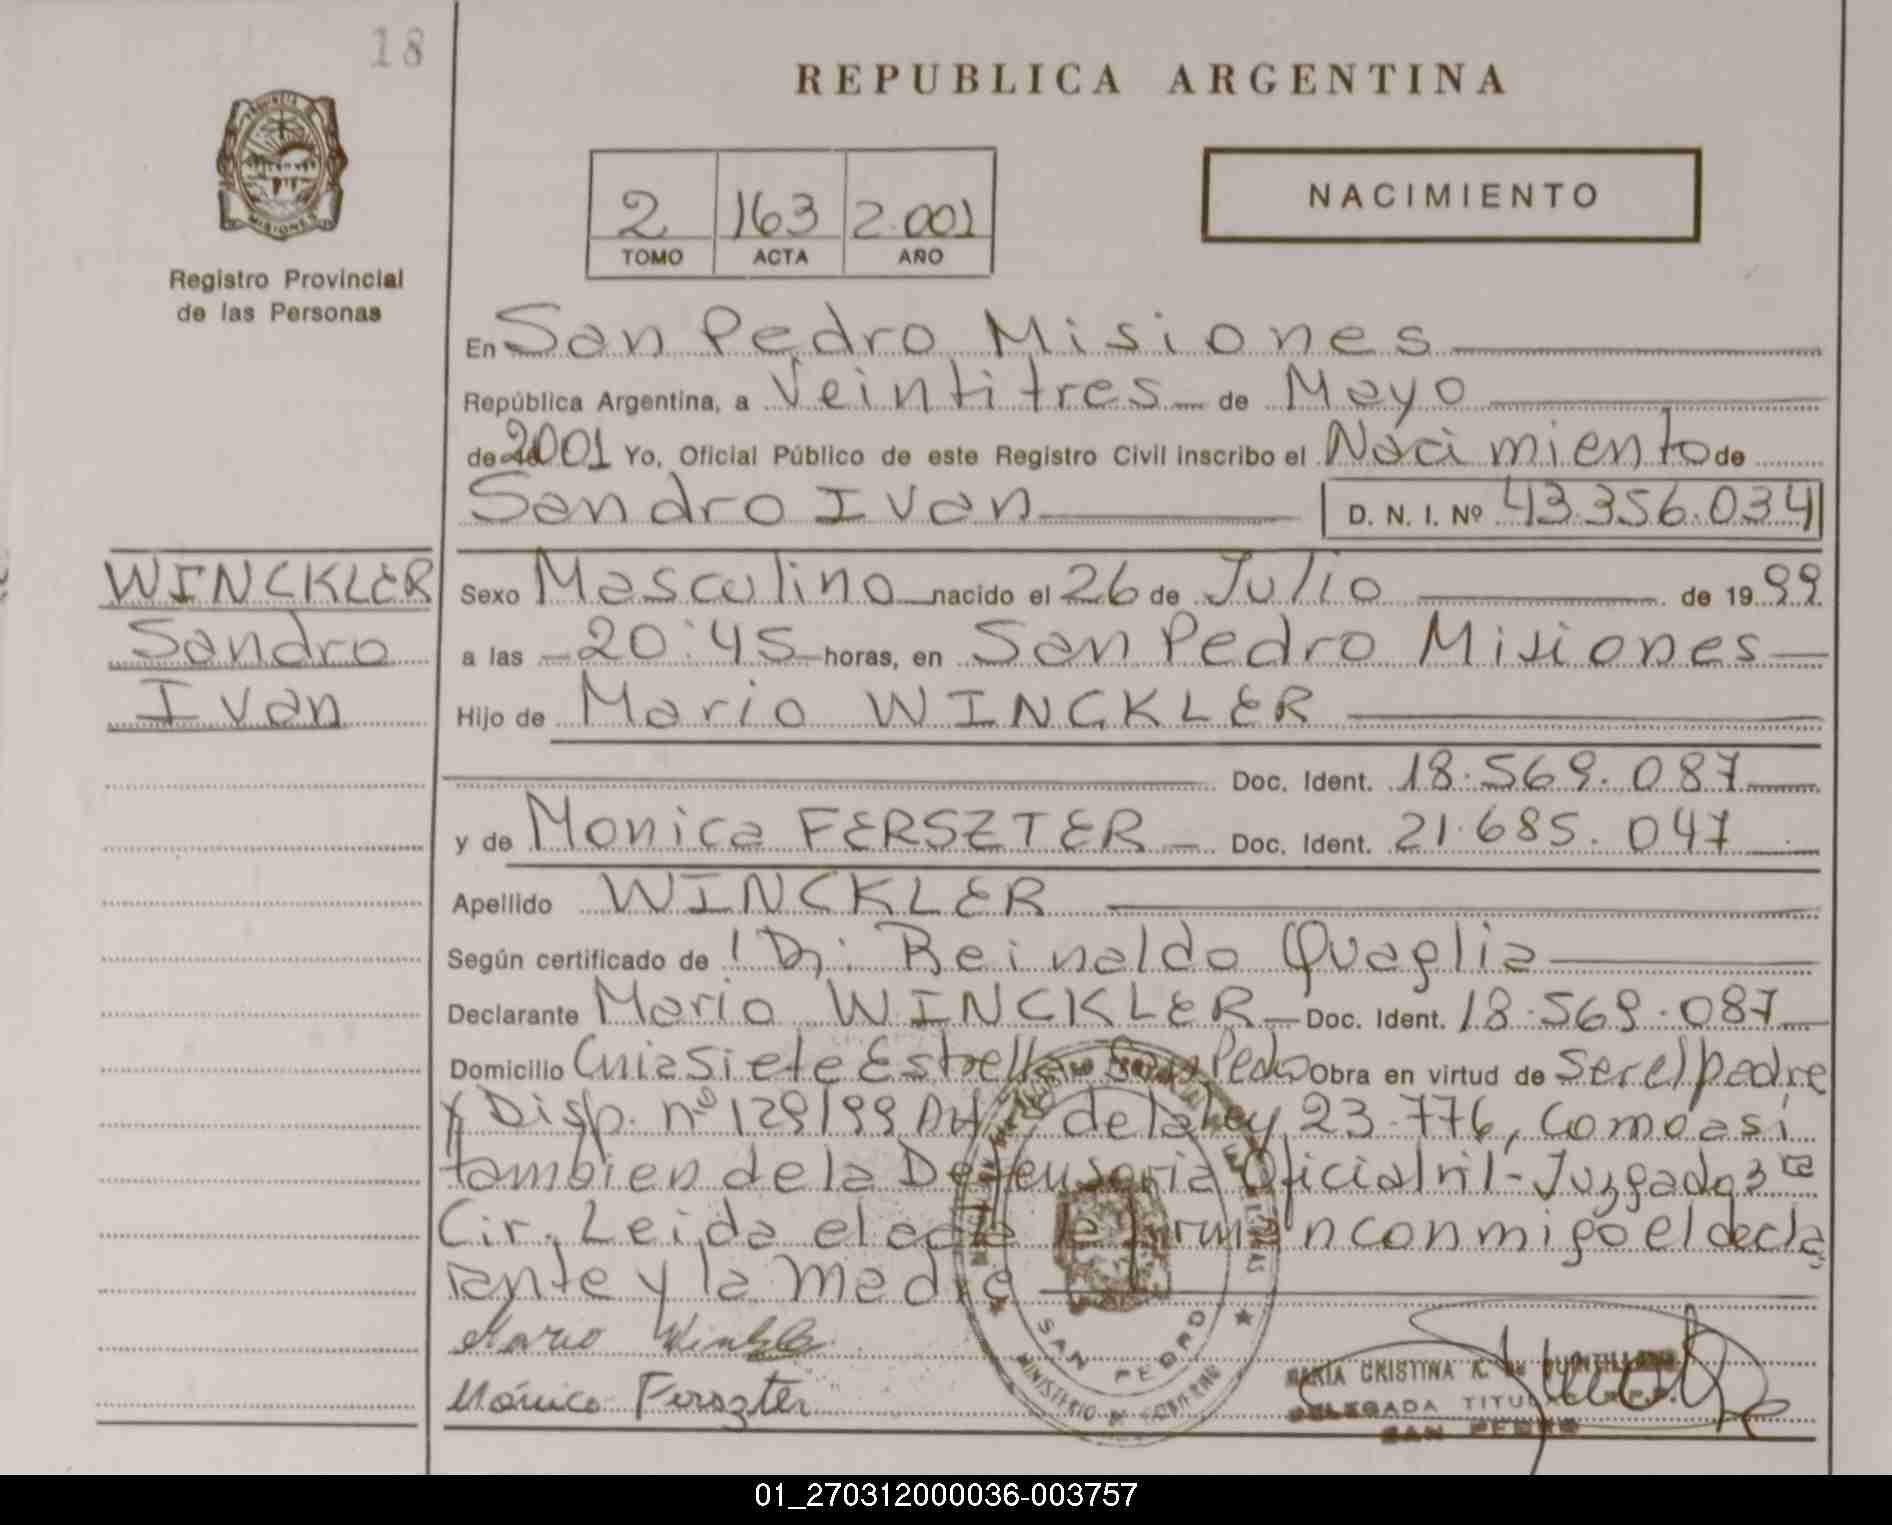 18
REPUBLICA ARGENTINA
NACIMIENTO
2 163 2.001
TOMO ACTA AÑO
MISIONES
Registro Provincial
de las Personas
En San Pedro Misiones
República Argentina, a Veintitres de Mayo
de 2001 Yo, Oficial Público de este Registro Civil inscribo el Nacimiento de
Sandro Ivan D. N. I. Nº 43.356.034
WINCKLER
Sandro
Ivan
Sexo Masculino nacido el 26 de Julio de 1999
a las 20:45 horas, en San Pedro Misiones
Hijo de Mario WINCKLER
Doc. Ident. 18.569.087
y de Monica FERSZTER Doc. Ident. 21.685.047
Apellido WINCKLER
Según certificado de Dr: Reinaldo Quaglia
Declarante Mario WINCKLER Doc. Ident. 18.569.087
Domicilio Cnia Siete Estrellas San Pedro Obra en virtud de ser el padre
y Disp. nº 129/99 de la ley 23.776, como asi
tambien de la Defensoria Oficial Juzgado 3ra
Cir. Leida el acta la firman conmigo el decla
rante y la madre
Mario Winkler
Mónica Ferszter
SAN PEDRO
MINISTERIO DE GOBIERNO
MARIA CRISTINA K. DE QUINTILLAN
DELEGADA TITULAR R.P.P.
SAN PEDRO
01_270312000036-003757